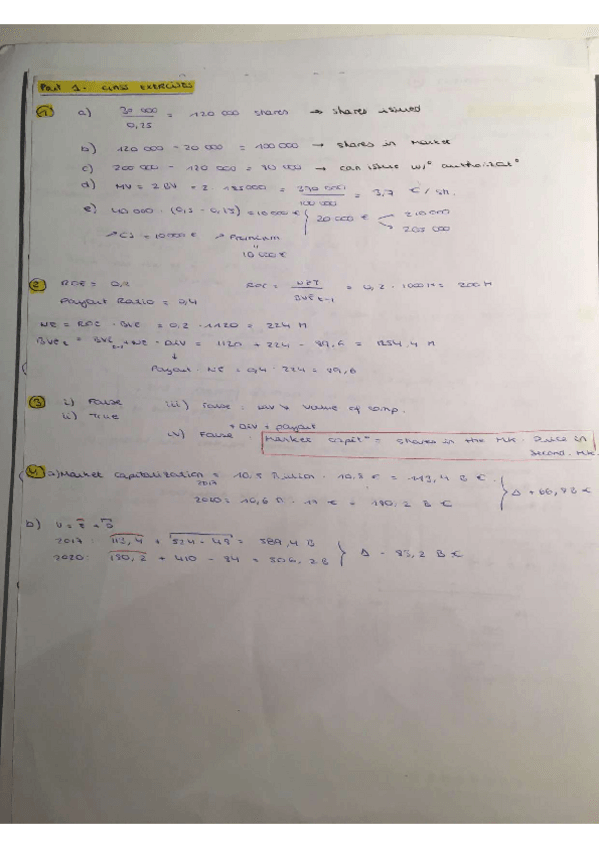 Part 1 - CLASS EXERCISES
1 a) 30 000 / 0,25 = 120 000 shares → shares issued
b) 120 000 - 20 000 = 100 000 → shares in Market
c) 200 000 - 120 000 = 80 000 → can issue w/o
d) MV = 2 BV = 2 · 185000 = 370 000 / 100 000 = 3,7 € / sh.
e) 40 000 · (0,5 - 0,25) = 10 000 € } 20 000 €
→ CS + 10 000 € → Premium
10 000 €
2 ROE = 0,2 ROE = NET / BVE t-1 = 0,2 · 1000 M = 200 M
Payout Ratio = 0,4
NE = ROE · BVE = 0,2 · 1120 = 224 M
BVE t = BVE t-1 + NE - DIV = 1120 + 224 - 89,6 = 1254,4 M
↓
Payout · NE = 0,4 · 224 = 89,6
3 i) False iii) False: value of comp.
ii) True
+ DIV + payout
iv) False: Market capit = shares in the Mk · Price in
Second. Mk.
4 a) Market Capitalization 2017 = 10,5 Billion · 10,8 € = 113,4 B €
2020 = 10,6 B · 17 € = 180,2 B €
b) V = E + D
2017: 113,4 + 324 - 48 = 389,4 B
2020: 180,2 + 410 - 84 = 506,2 B